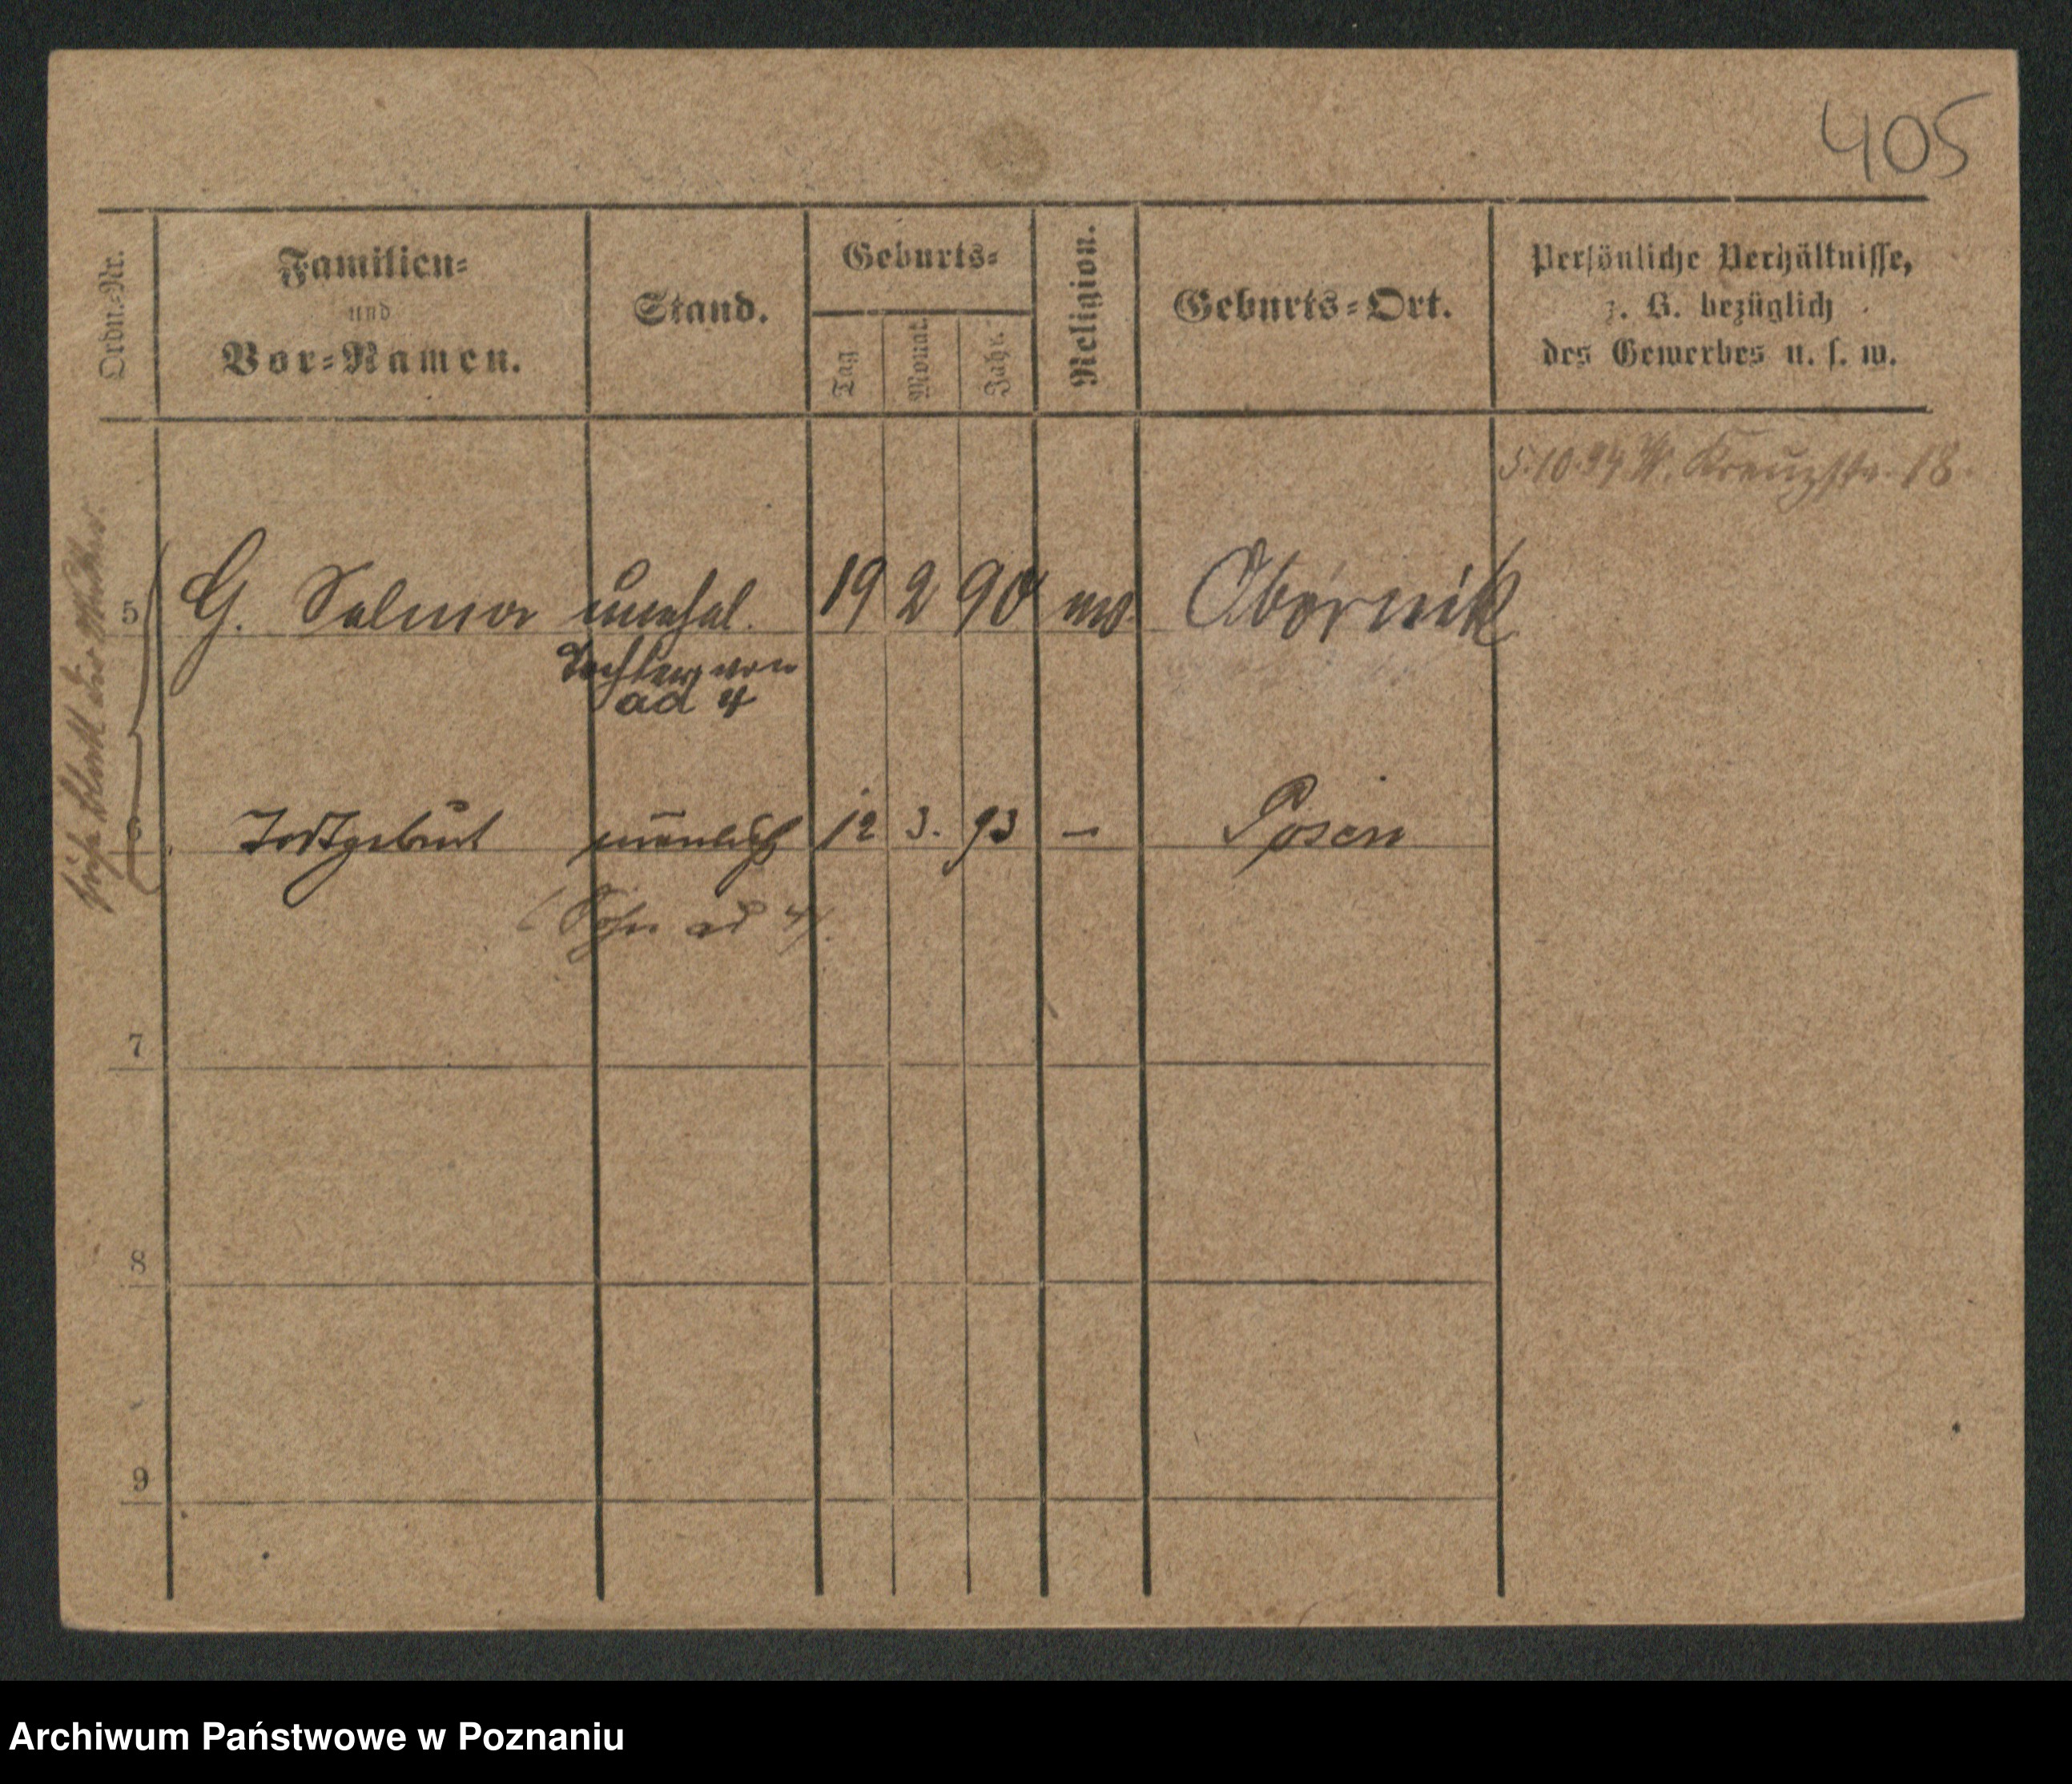 405
Ordn.=Nr.
Familien=
und
Vor=Namen.
Stand.
Geburts=
Tag
Monat.
Jahr.
Religion.
Geburts=Ort.
Persönliche Verhältnisse,
z. B. bezüglich
des Gewerbes u. s. w.
5.10.94 Kreuzstr. 18.
5 G. Selma unehel. 19 2 90 Obornik
Tochter von
ad 4
6 Todtgeburt männlich 12 3. 93 – Posen
(Sohn ad 4).
siehe Blatt der Mutter.
7
8
9
Archiwum Państwowe w Poznaniu